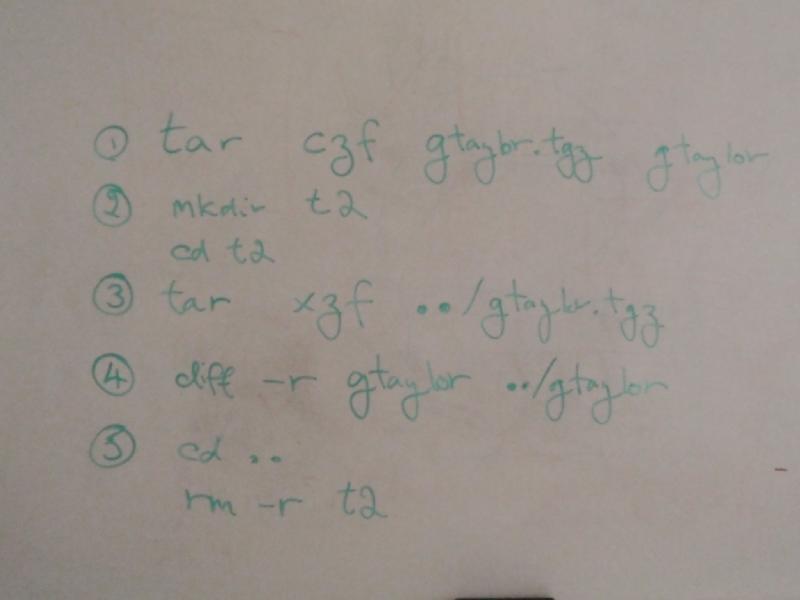 ① tar czf gtaylor.tgz gtaylor
② mkdir t2
cd t2
③ tar xzf ../gtaylor.tgz
④ diff -r gtaylor ../gtaylor
⑤ cd ..
rm -r t2